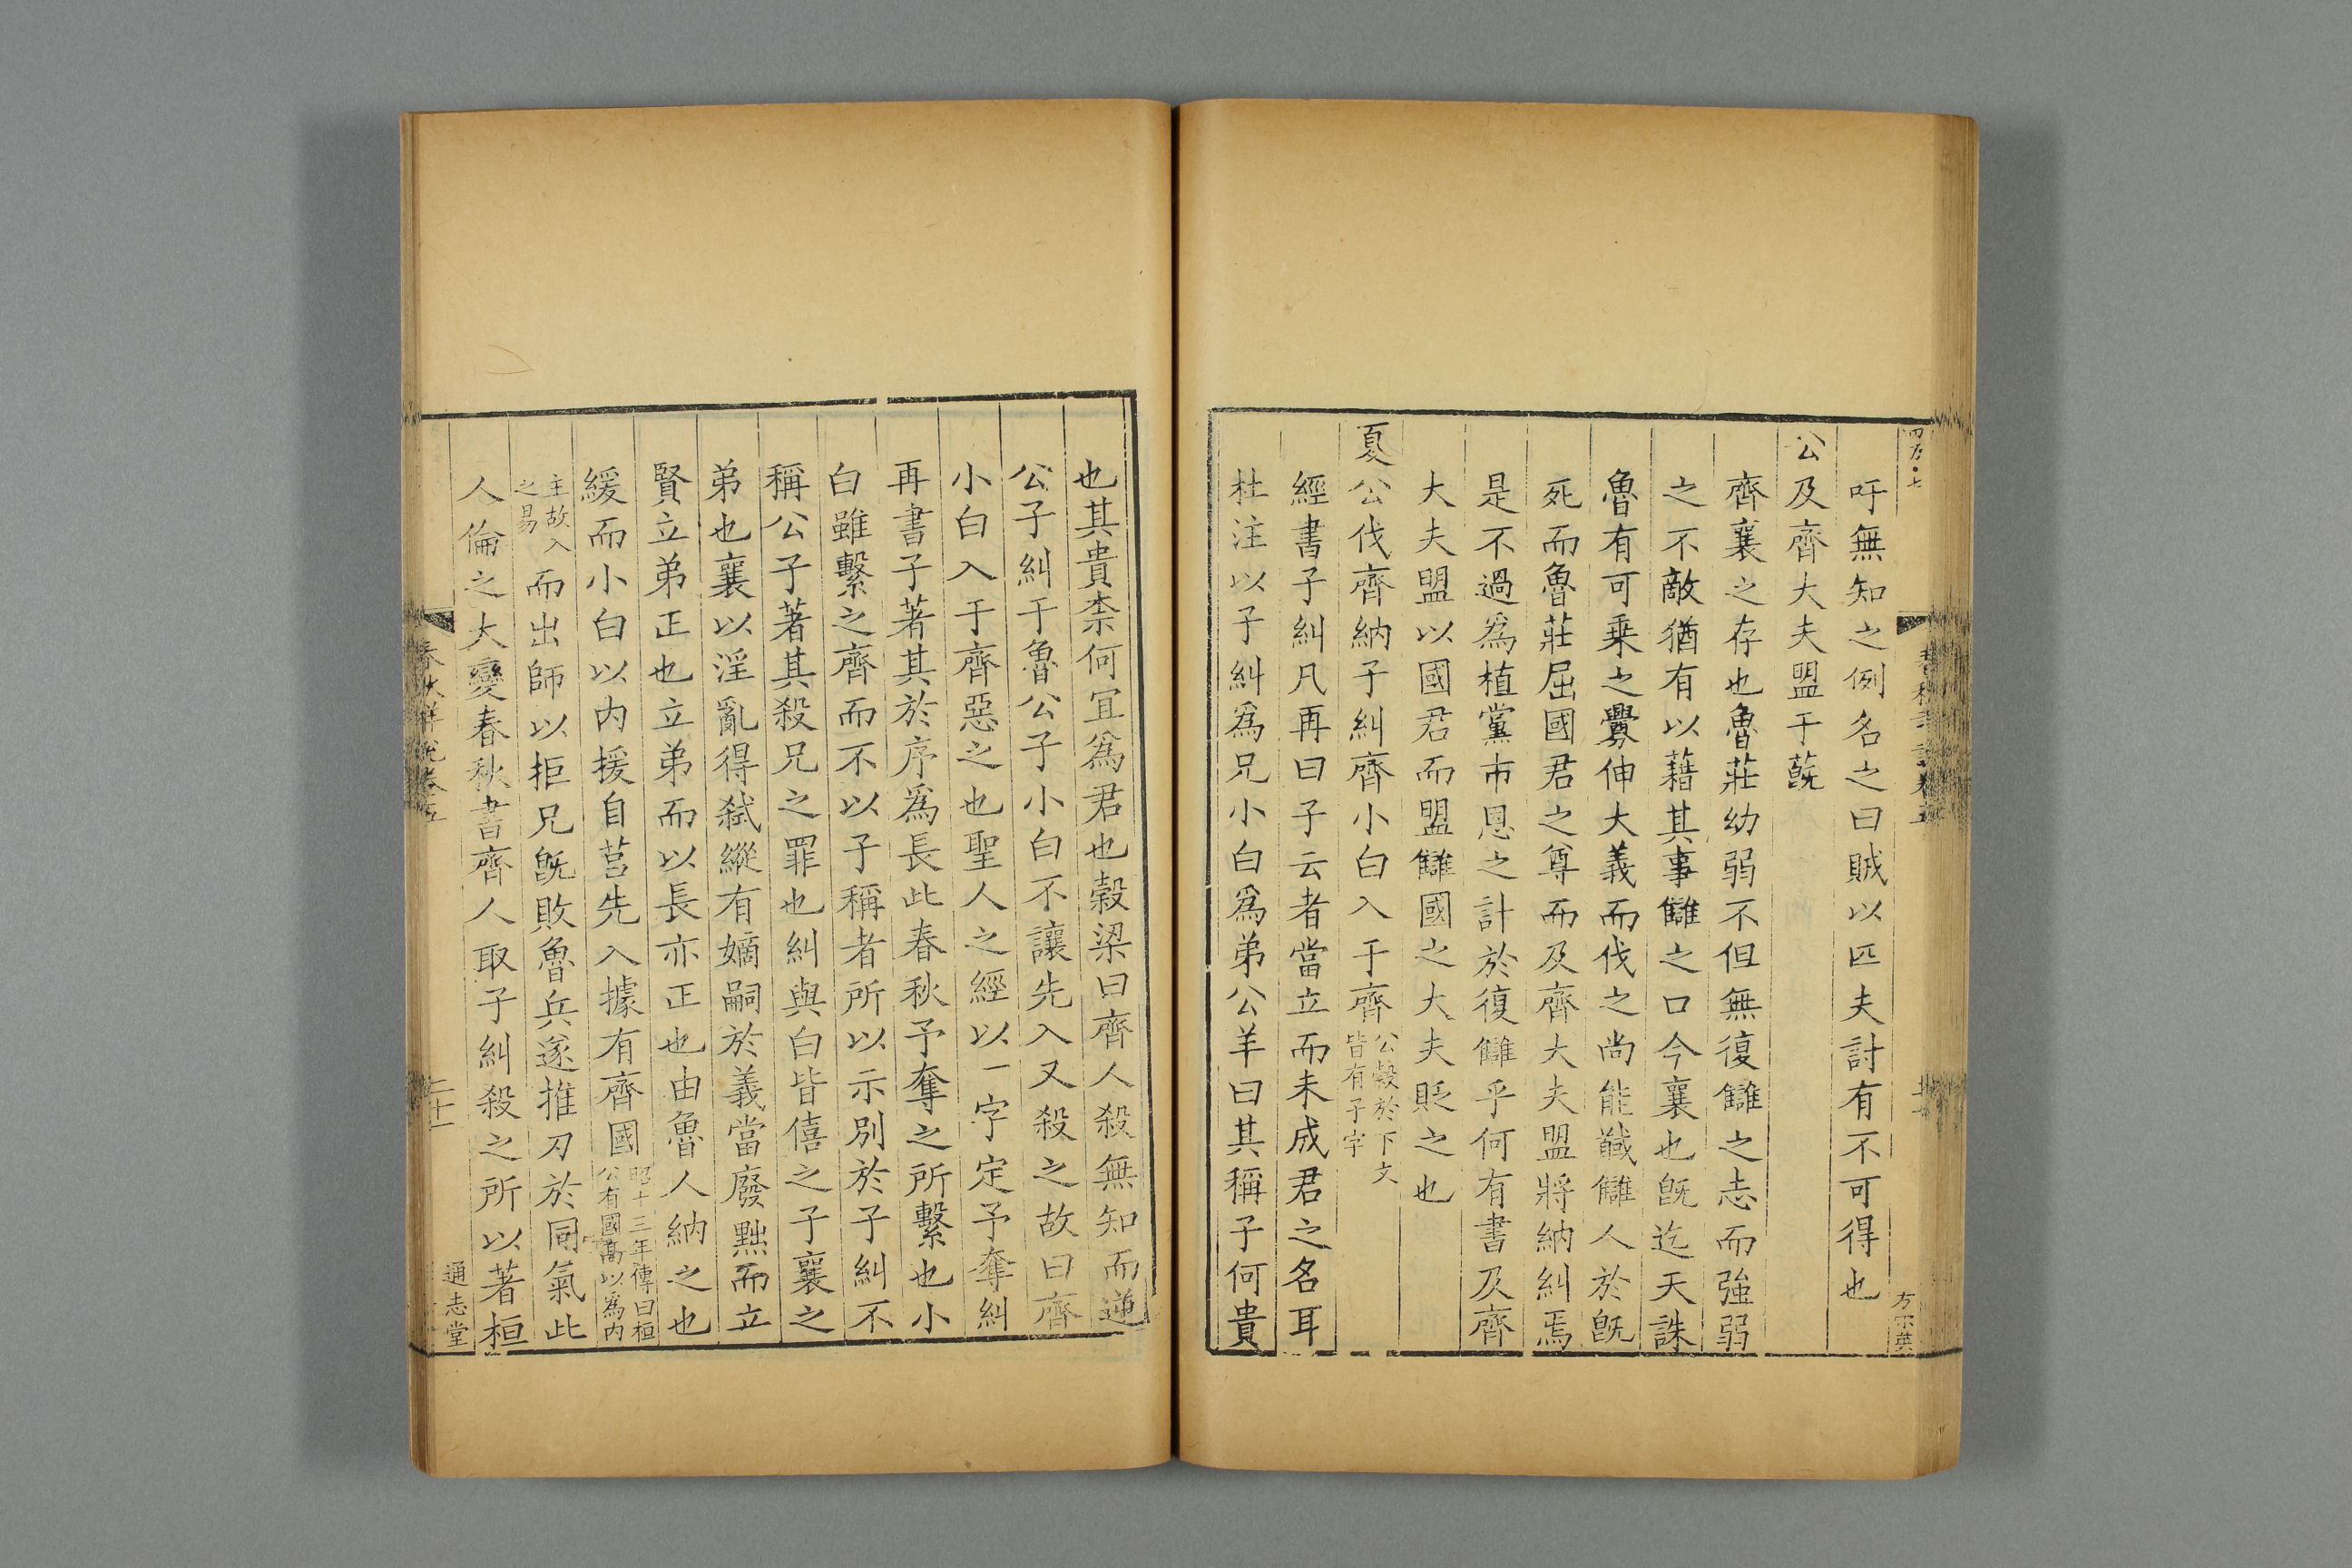 吁無知之例名之曰賊以匹夫討有不可得也
公及齊大夫盟于蔇
齊襄之存也魯莊幼弱不但無復讎之志而強弱
之不敵猶有以藉其事讎之口今襄也旣迄天誅
魯有可乗之釁伸大義而伐之尚能馘讎人於旣
死而魯莊屈國君之尊而及齊大夫盟將納糾焉
是不過爲植黨市恩之計於復讎乎何有書及齊
大夫盟以國君而盟讎國之大夫貶之也
夏公伐齊納子糾齊小白入于齊公穀於下文皆有子字
經書子糾凡再曰子云者當立而未成君之名耳
杜注以子糾爲兄小白爲弟公羊曰其稱子何貴
也其貴柰何宜爲君也榖梁曰齊人殺無知而逆
公子糾于魯公子小白不讓先入又殺之故曰齊
小白入于齊惡之也聖人之經以一字定予奪糾
再書子著其於序爲長此春秋予奪之所繫也小
白雖繫之齊而不以子稱者所以示別於子糾不
稱公子著其殺兄之罪也糾與白皆僖之子襄之
弟也襄以淫亂得弑縱有嫡嗣於義當廢黜而立
賢立弟正也立弟而以長亦正也由魯人納之也
緩而小白以内援自莒先入據有齊國昭十三年傳曰桓公有國高以爲内
主故入之易而出師以拒兄旣敗魯兵遂推刃於同氣此
人倫之大變春秋書齊人取子糾殺之所以著桓
春秋詳說卷五
通志堂